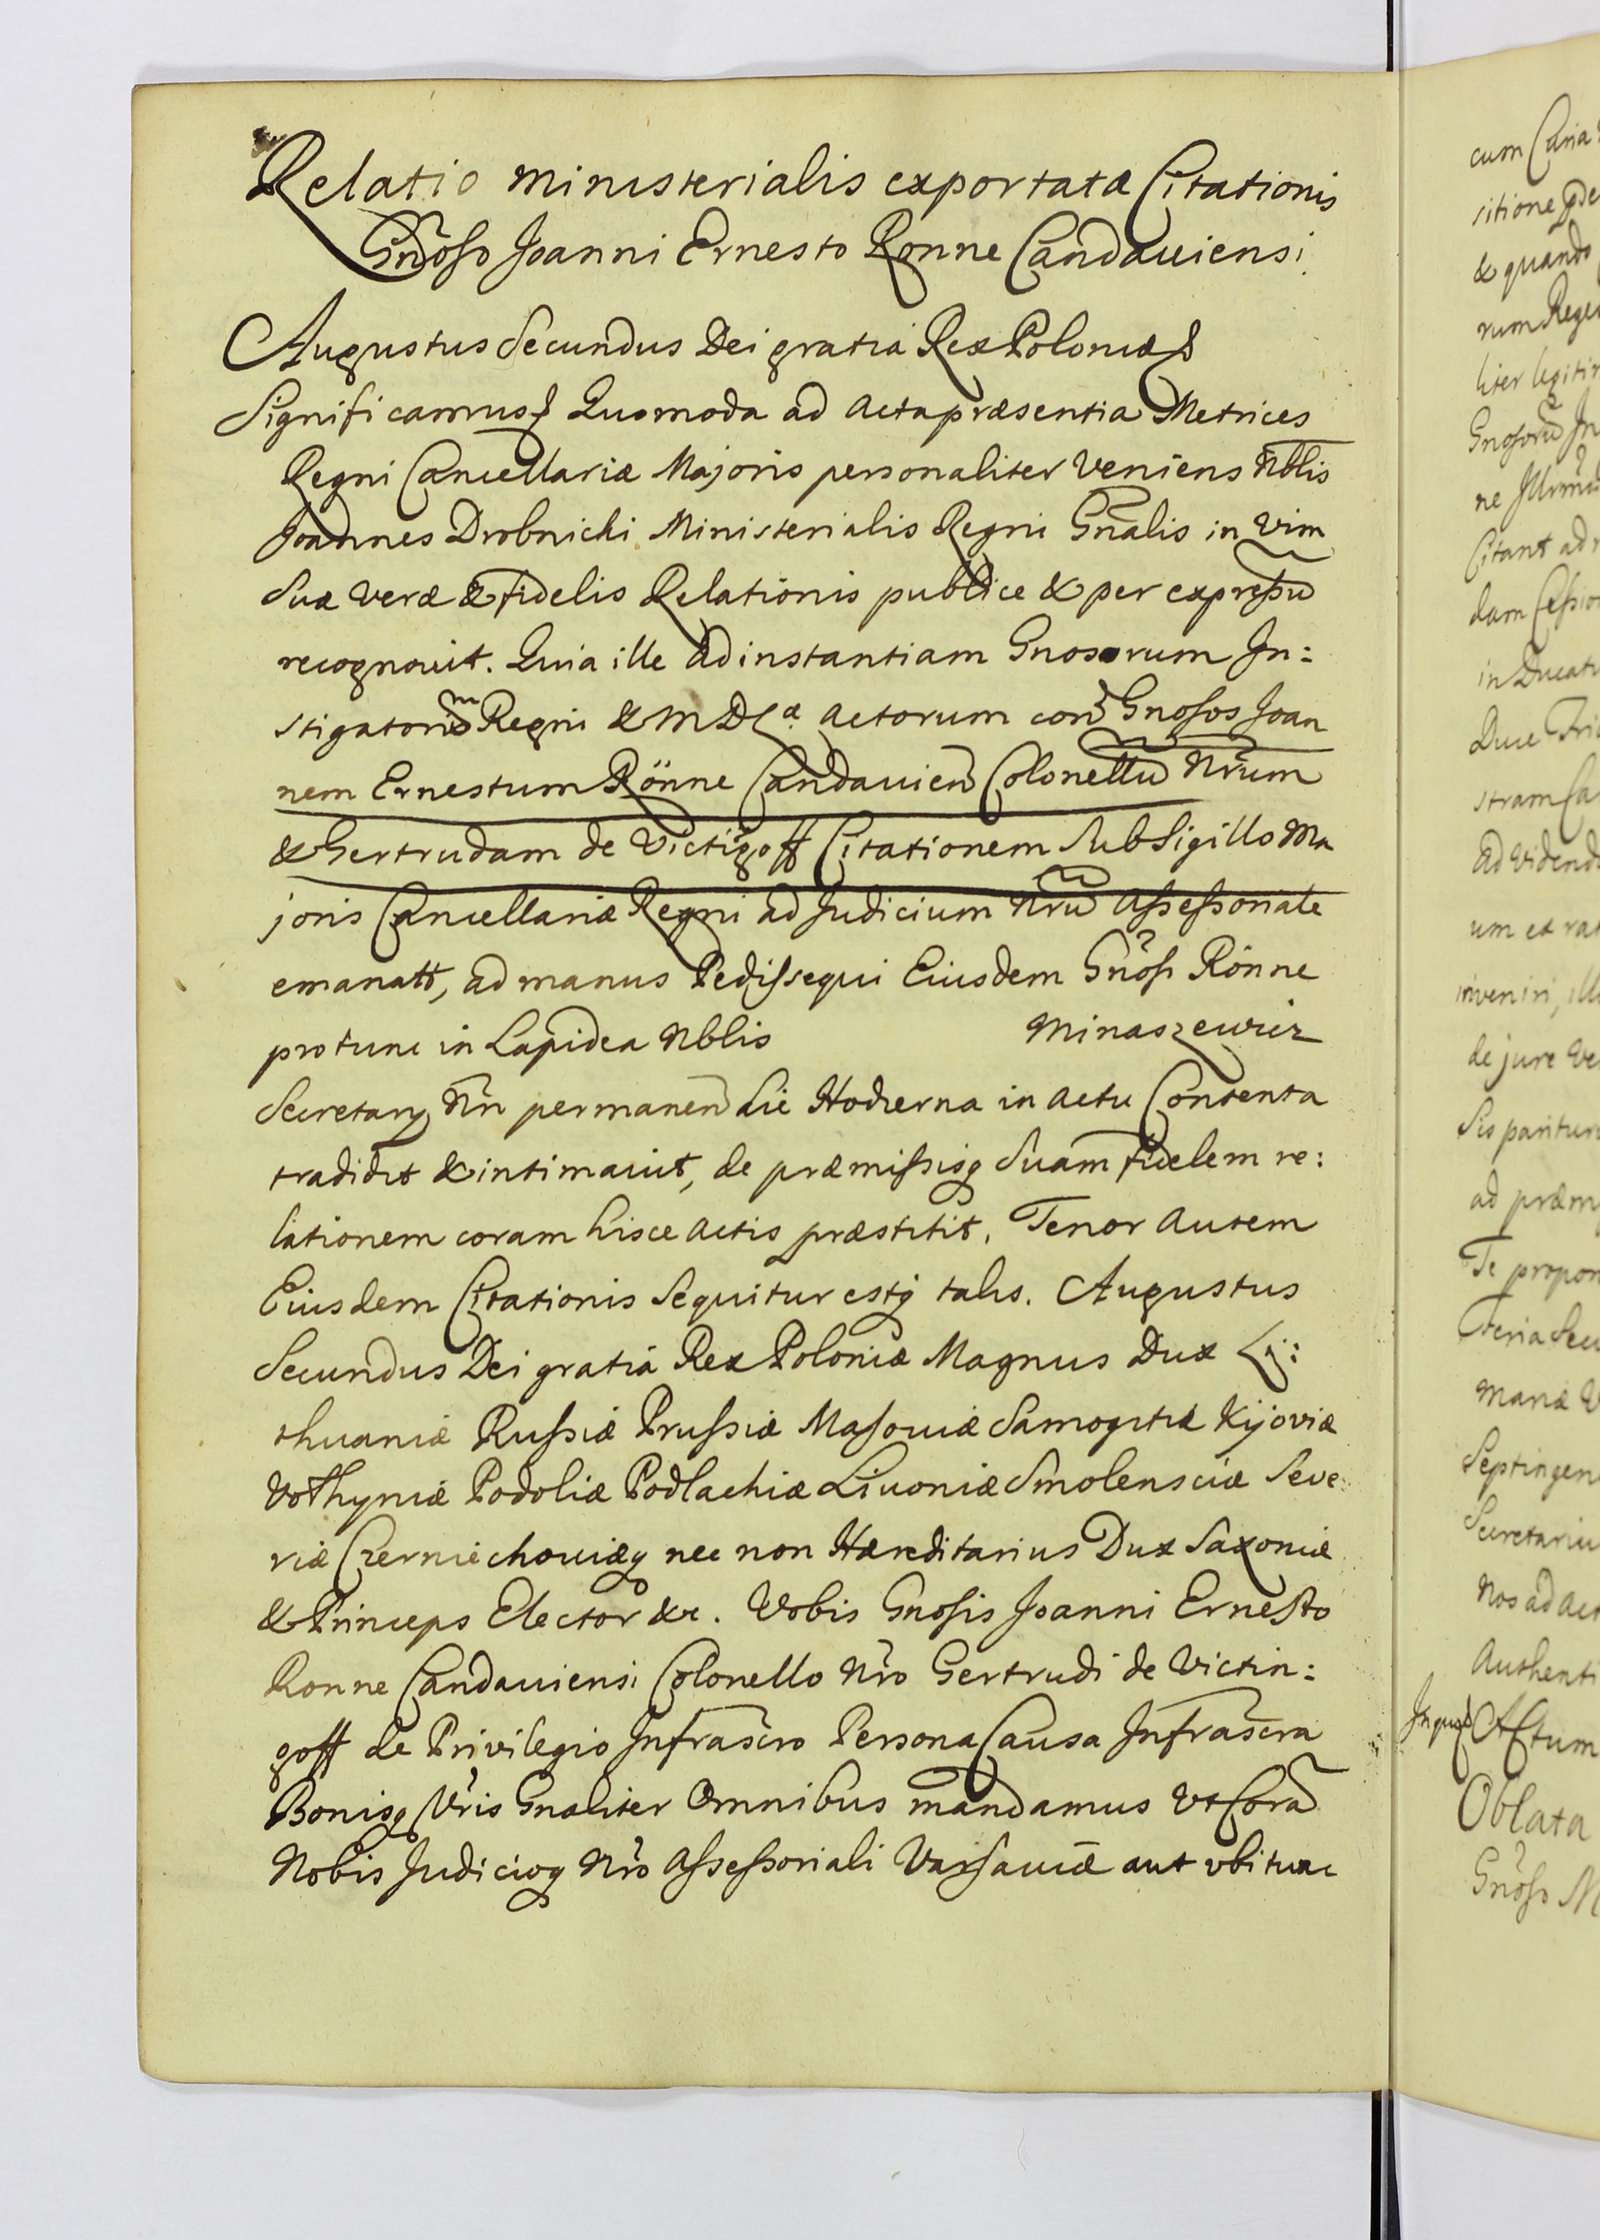 Relatio ministerialis exportatæ Citationis
Gñoso Joanni Ernesto Ronne Candauiensi
Augustus Secundus Dei gratia Rex Poloniæ &
Significamus & Quomodo ad Acta præsentia Metrices
Regni Cancellariæ Majoris personaliter veniens Nblis
Joannes Drobnicki Ministerialis Regni Gnalis in vim
Suæ veræ & fidelis Relationis publice & per expressũ
recognouit. Quia ille ad instantiam Gnosorum In:
stigatorum Regni & M D L æ Actorum con Gnosos Joan
nem Ernestum Rönne Candauien Colonellũ Nrum
& Gertrudam de Victigoff Citationem Sub Sigillo Ma
joris Cancellariæ Regni ad Judicium Nrũ Assessoriale
emanatt, ad manus Pedissequi Eiusdem Gnosi Rönne
pro tunc in Lapidea Nblis Minaszewicz
Secretarij Nri permanen Die Hodierna in actu Contenta
tradidit & intimauit, de præmissisq Suam fidelem re:
lationem coram hisce actis præstitit. Tenor autem
Eiusdem Citationis Sequitur estq talis. Augustus
Secundus Dei gratia Rex Poloniæ Magnus Dux Li:
thuaniæ Russiæ Prussiæ Masouiæ Samogitiæ Kijoviæ
Volhyniæ Podoliæ Podlachiæ Liuoniæ Smolensciæ Seve:
riæ Czerniechouiæq nec non Hæreditarius Dux Saxoniæ
& Princeps Elector &c. Vobis Gnosis Joanni Ernesto
Ronne Candauiensi Colonello Nro Gertrudi de Victin:
goff de Privilegio Infrascro Persona Causa Infrascra
Bonisq Vris Gnaliter Omnibus mandamus Ut Corã
Nobis Judicioq Nro Assessoriali Varsauiæ aut ubi tunc
cum Curia
sitione
& quando
num Rege
liter legitim
Gnosorũ In
ne
Citant ad
dam Cessio
in Ducatu
Duce Fri
stram Ca
ad videnda
um et rat
inveniri, ill
de jure ve
Sis paritur
ad præm
Te propon
Feria Secu
Mariæ V
Septingen
Secretariu
Nos ad Act
Authenti
Actum
Oblata
Gnoso M